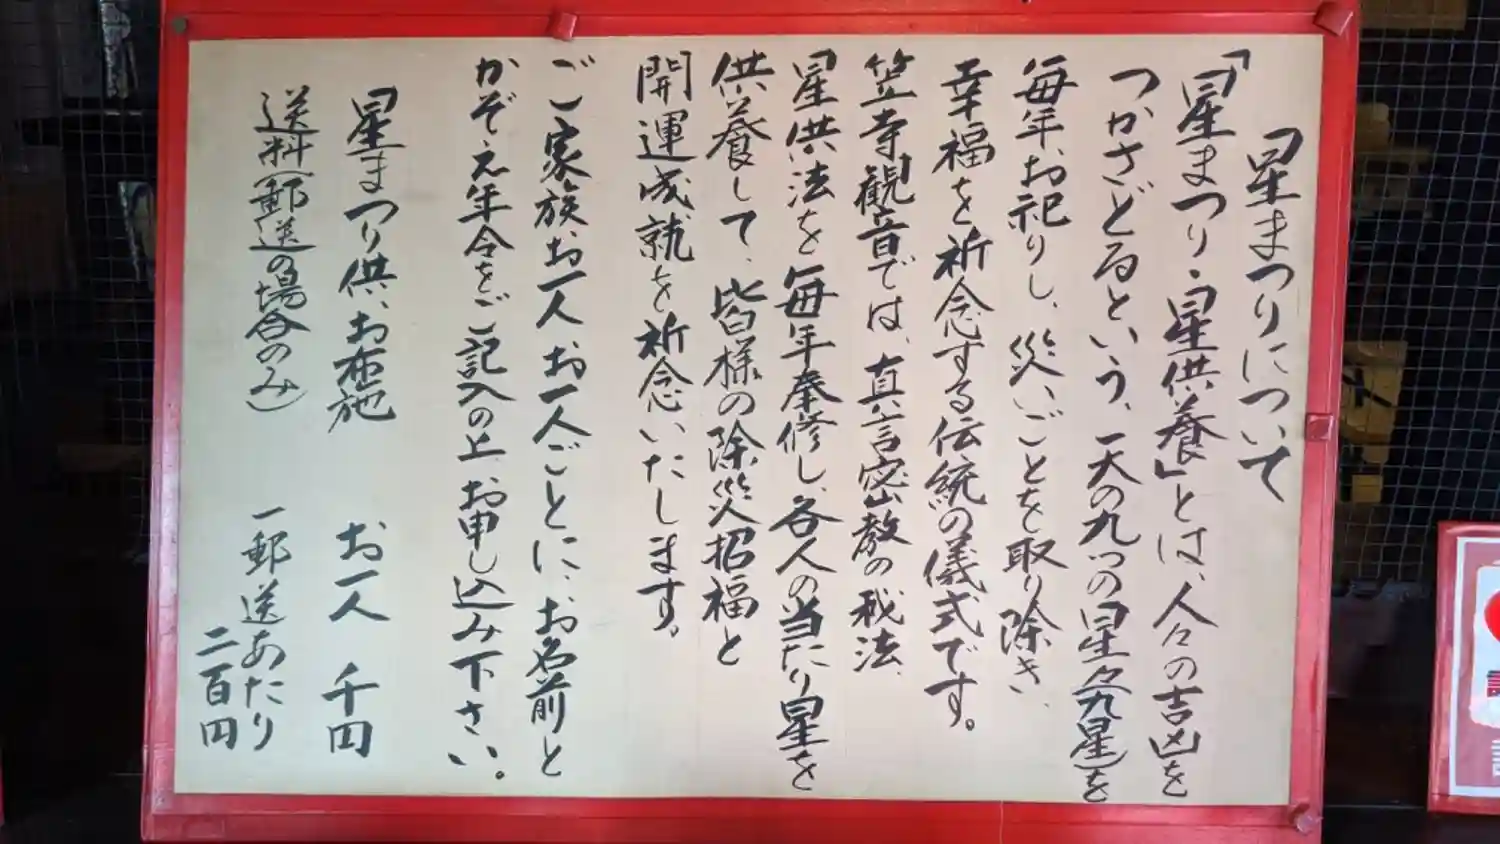 星まつりについて
「星まつり・星供養」とは、人々の吉凶を
つかさどるという、天の九つの星々(九星)を
毎年、お祀りし、災いごとを取り除き、
幸福を祈念する伝統の儀式です。
笠寺観音では、真言密教の秘法、
星供法を毎年奉修し、各人の当たり星を
供養して、皆様の除災招福と
開運成就を祈念いたします。
ご家族、お一人お一人ごとに、お名前と
かぞえ年令をご記入の上、お申し込み下さい。
星まつり供、お布施 お一人 千円
送料(郵送の場合のみ) 一郵送あたり
二百円